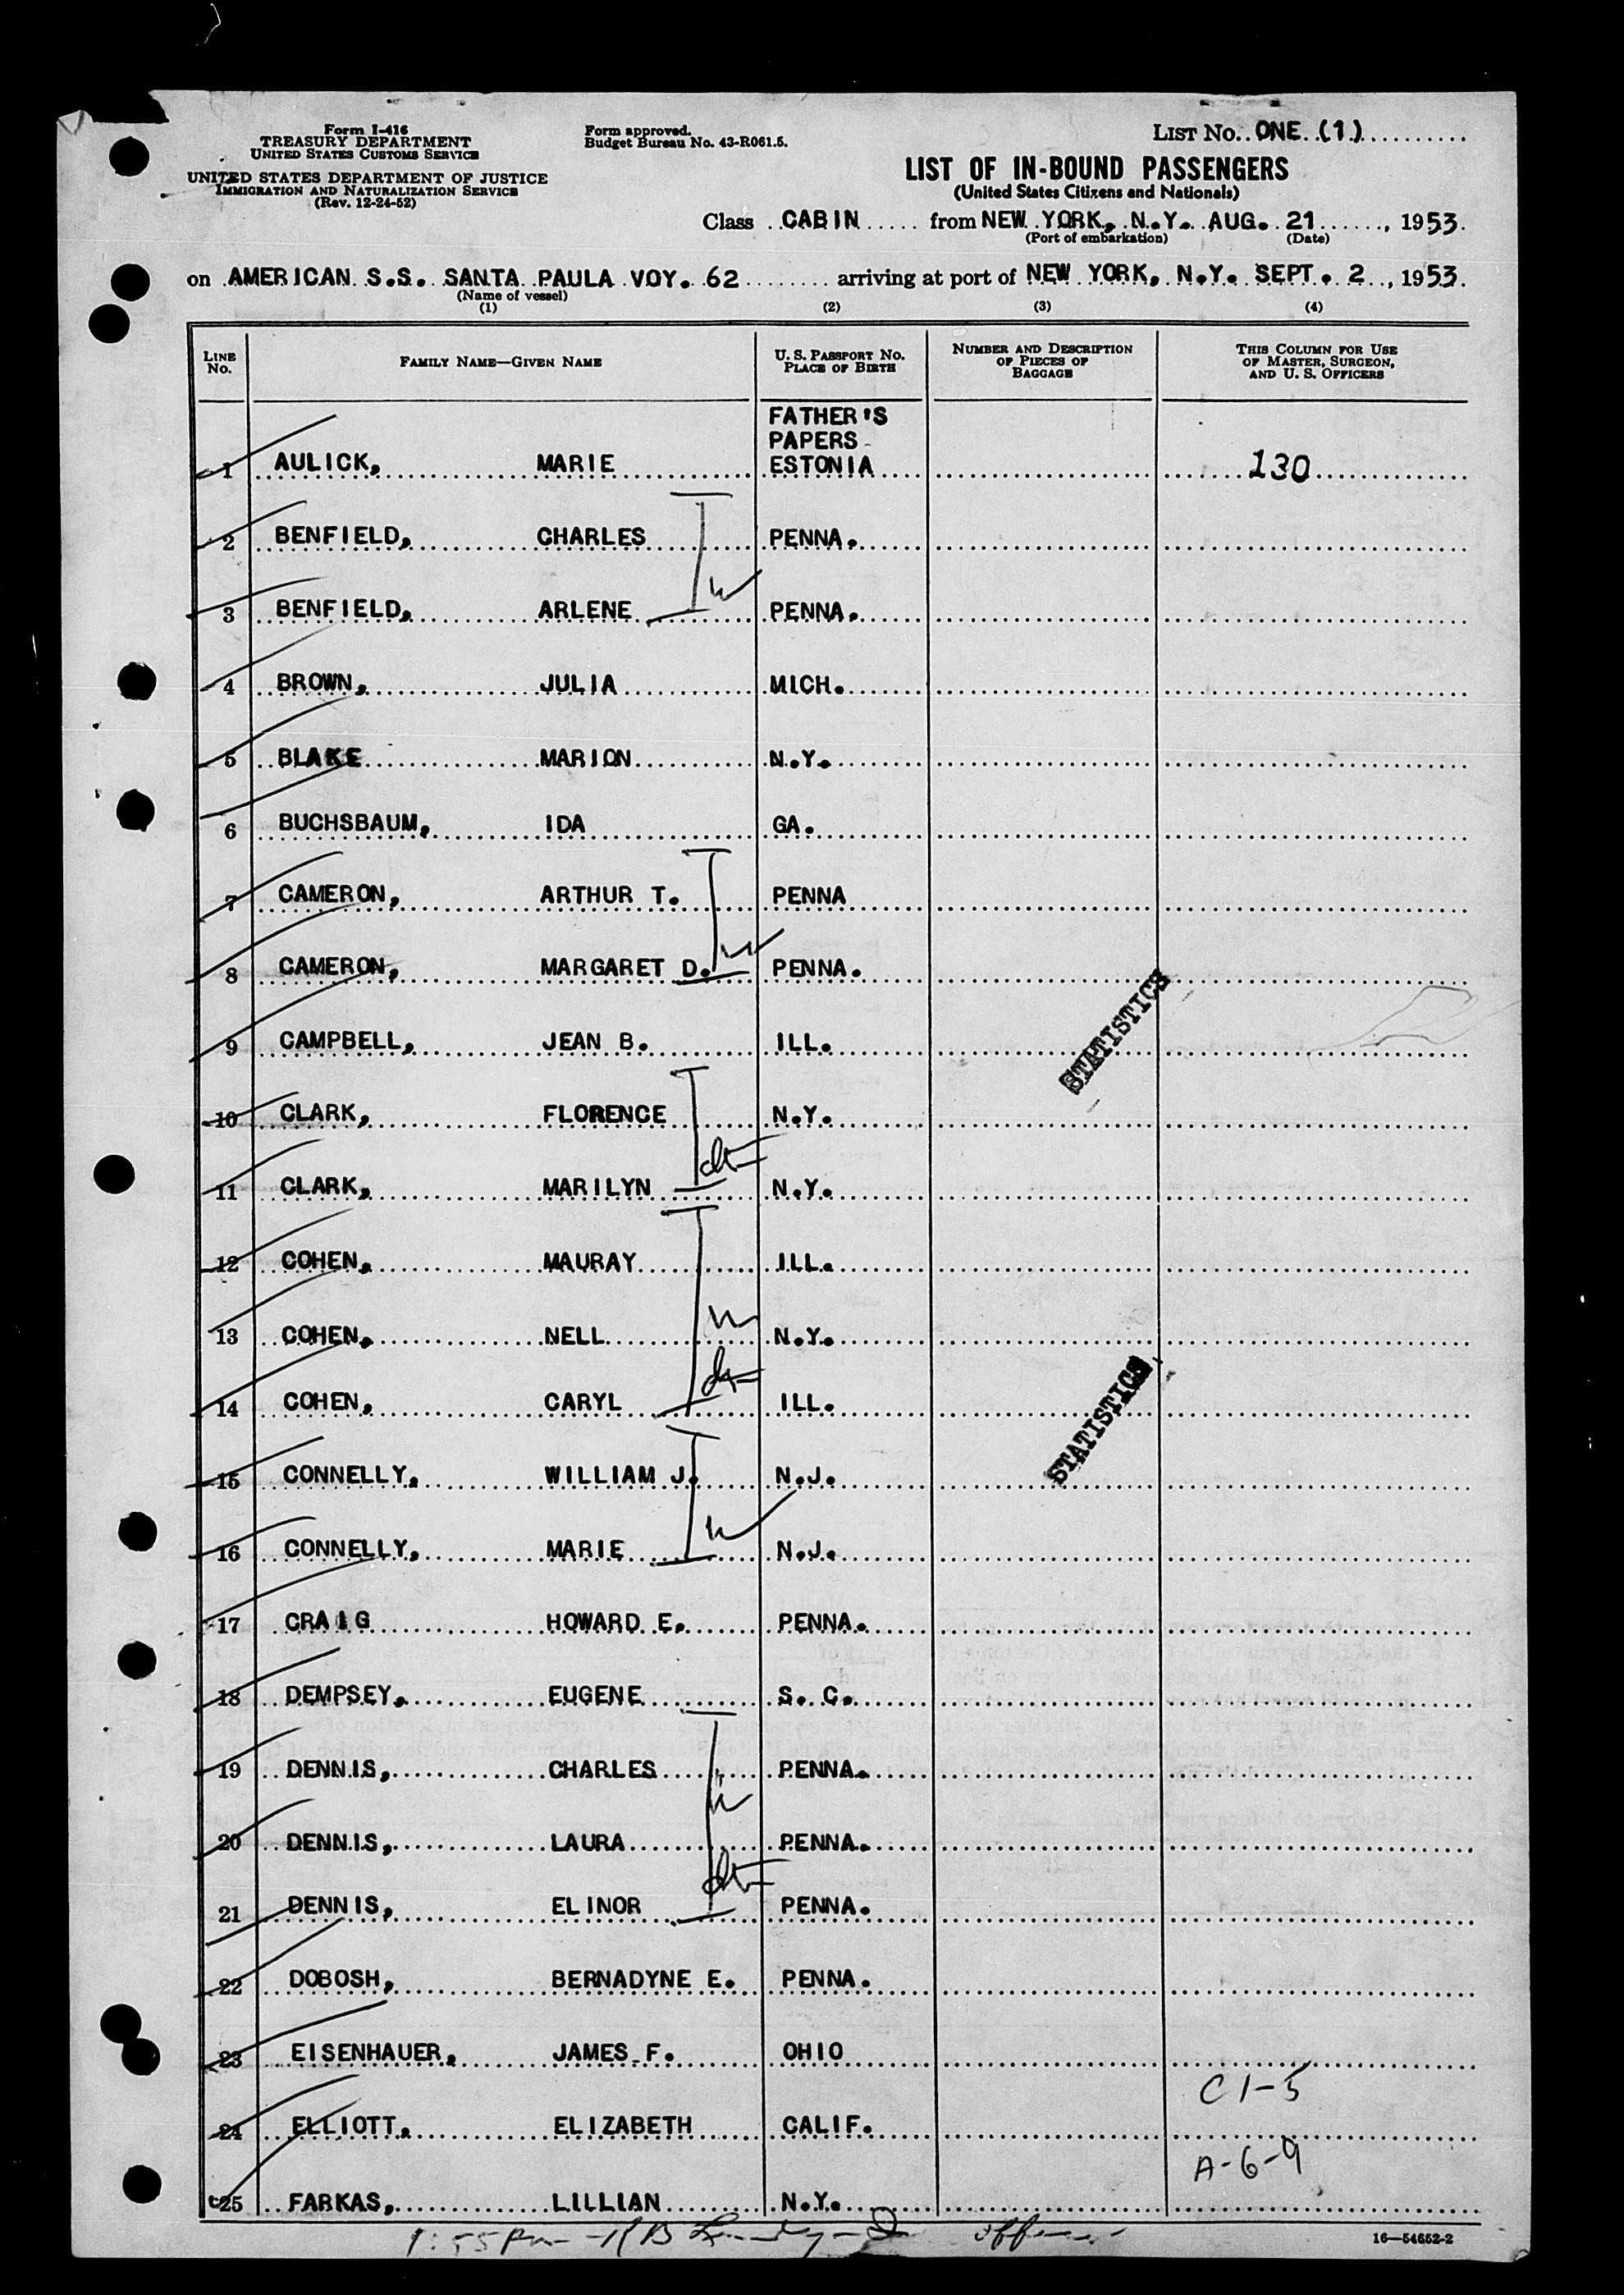 Form I-416
TREASURY DEPARTMENT
UNITED STATES CUSTOMS SERVICE
UNITED STATES DEPARTMENT OF JUSTICE
IMMIGRATION AND NATURALIZATION SERVICE
(Rev. 12-24-52)
Form approved.
Budget Bureau No. 43-R061.5.
LIST NO. ONE (1)
LIST OF IN-BOUND PASSENGERS
(United States Citizens and Nationals)
Class CABIN from NEW YORK, N.Y. AUG. 21, 1953.
(Port of embarkation) (Date)
on AMERICAN S.S. SANTA PAULA VOY. 62 arriving at port of NEW YORK, N.Y. SEPT. 2, 1953.
(Name of vessel)
(1) (2) (3) (4)
LINE NO. FAMILY NAME—GIVEN NAME U. S. PASSPORT NO. PLACE OF BIRTH NUMBER AND DESCRIPTION OF PIECES OF BAGGAGE THIS COLUMN FOR USE OF MASTER, SURGEON, AND U. S. OFFICERS
FATHER'S
PAPERS
1 AULICK, MARIE ESTONIA 130
2 BENFIELD, CHARLES PENNA.
3 BENFIELD, ARLENE PENNA.
4 BROWN, JULIA MICH.
5 BLAKE MARION N.Y.
6 BUCHSBAUM, IDA GA.
7 CAMERON, ARTHUR T. PENNA
8 CAMERON, MARGARET D. PENNA.
STATISTICS
9 CAMPBELL, JEAN B. ILL.
10 CLARK, FLORENCE N.Y.
11 CLARK, MARILYN N.Y.
12 COHEN, MAURAY ILL.
13 COHEN, NELL N.Y.
14 COHEN, CARYL ILL.
STATISTICS
15 CONNELLY, WILLIAM J. N.J.
16 CONNELLY, MARIE N.J.
17 CRAIG HOWARD E. PENNA.
18 DEMPSEY, EUGENE S. C.
19 DENNIS, CHARLES PENNA.
20 DENNIS, LAURA PENNA.
21 DENNIS, ELINOR PENNA.
22 DOBOSH, BERNADYNE E. PENNA.
23 EISENHAUER, JAMES F. OHIO
C 1-5
24 ELLIOTT, ELIZABETH CALIF.
A-6-9
25 FARKAS, LILLIAN N.Y.
1:55 pm
16—54652-2